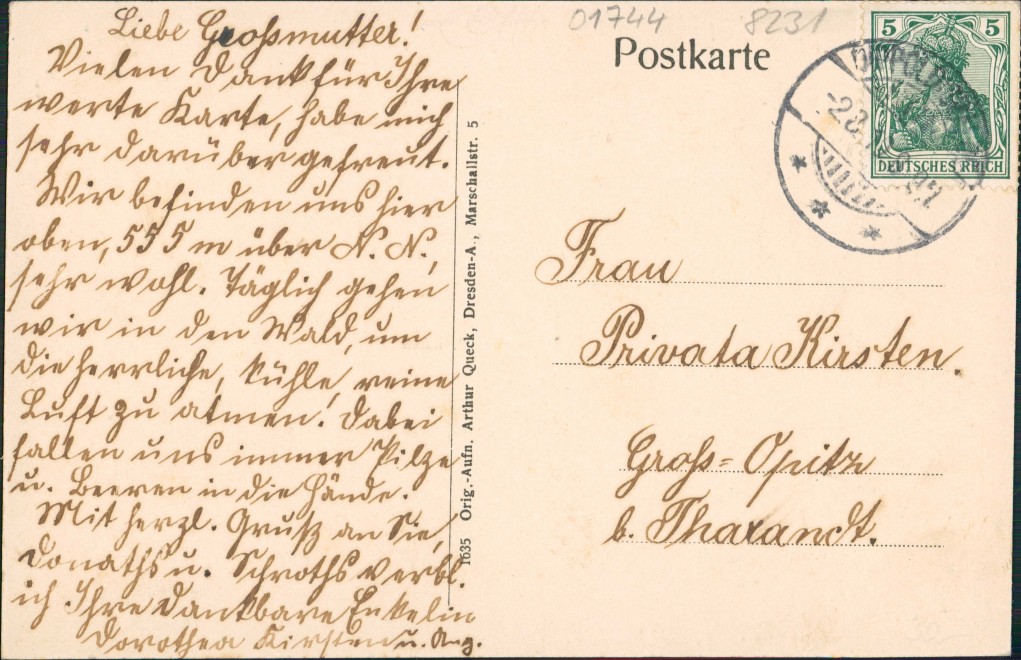 01744 8231
Postkarte
5 5
DEUTSCHES REICH
Liebe Großmutter!
Vielen Dank für Ihre
werte Karte, habe mich
sehr darüber gefreut.
Wir befinden uns hier
oben, 555 m über N. N.,
sehr wohl. Täglich gehen
wir in den Wald, um
die herrliche, kühle, reine
Luft zu atmen! Dabei
fallen uns immer Pilze
u. Beeren in die Hände.
Mit herzl. Gruß an Sie,
Donaths u. Schroths verbl.
ich Ihre dankbare Enkelin
Dorothea Kirsten u. Ang.
1635 Orig.-Aufn. Arthur Queck, Dresden-A., Marschallstr. 5
Frau
Privata Kirsten.
Groß-Opitz
b. Tharandt.